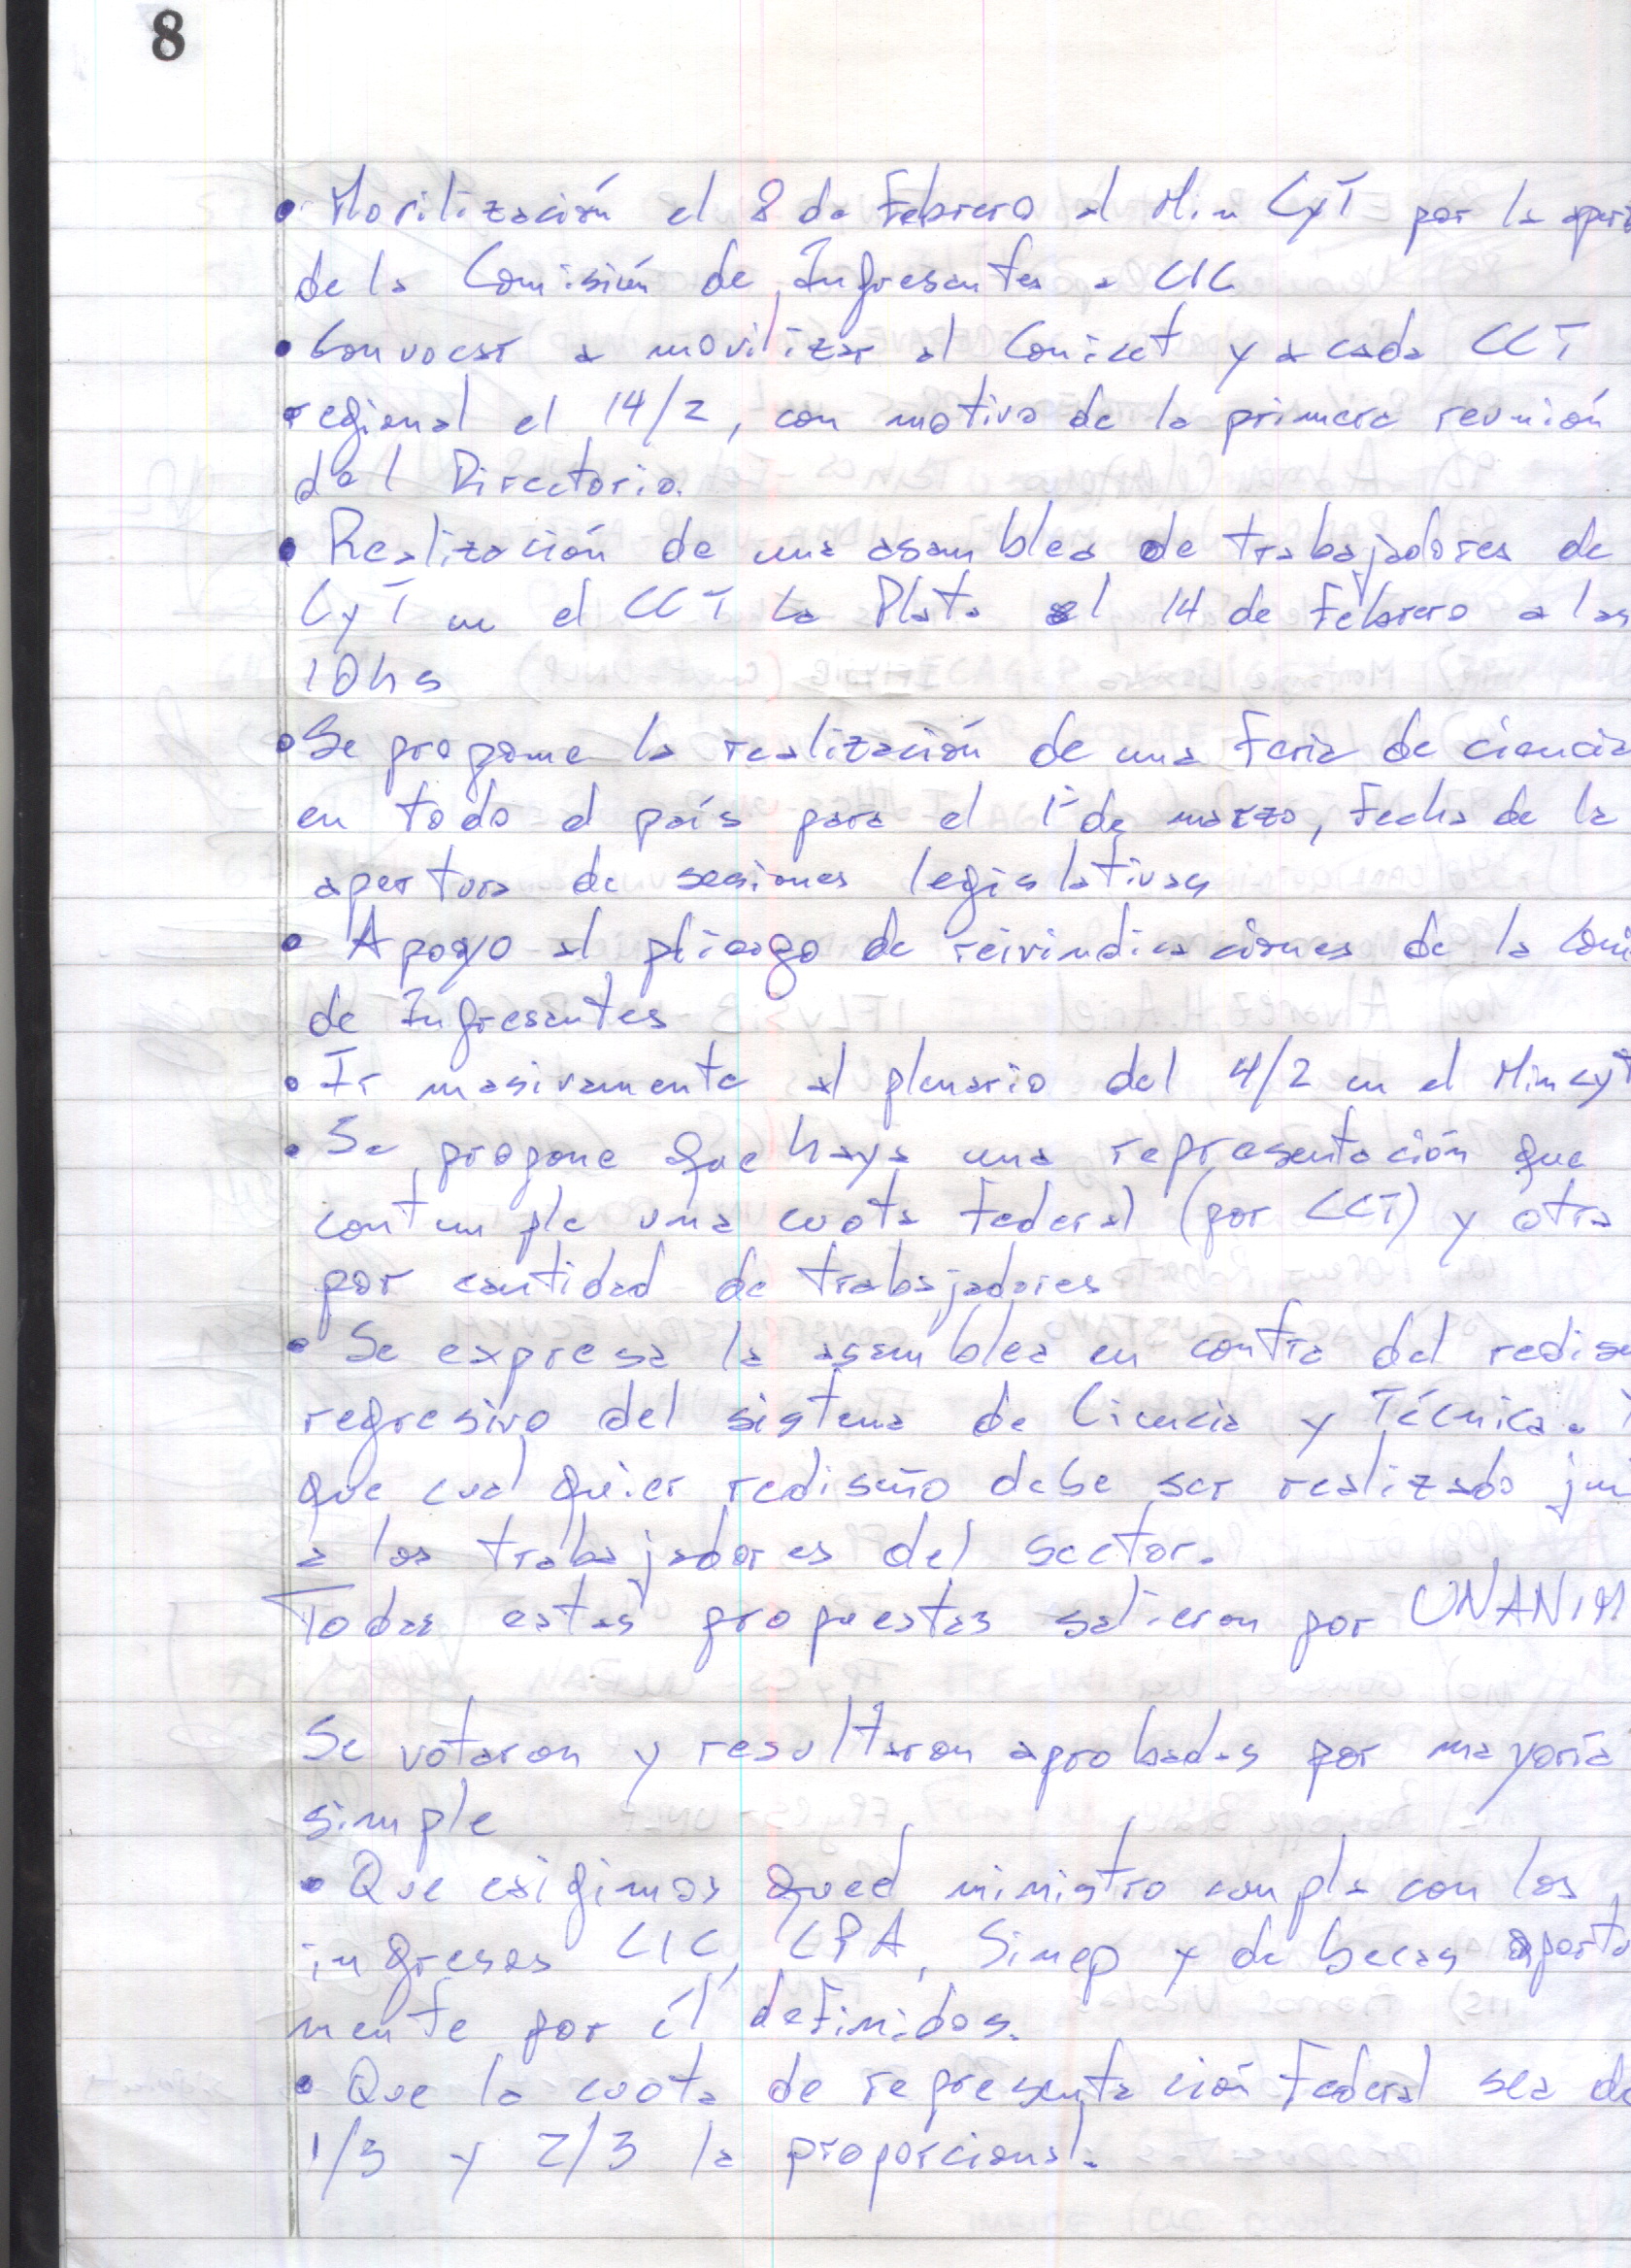 8
• Movilización el 8 de Febrero al Min CyT por la aper
de la Comisión de Ingresantes a CIC
• Convocar a movilizar al Conicet y a cada CCT
regional el 14/2, con motivo de la primera reunión
del Directorio.
• Realización de una asamblea de trabajadores de
CyT en el CCT La Plata el 14 de Febrero a las
10hs
• Se propone la realización de una Feria de ciencia
en todo el país para el 1º de marzo, Fecha de la
apertura de sesiones legislativas
• Apoyo al pliego de reivindicaciones de la Comi
de Ingresantes
• Ir masivamente al plenario del 4/2 en el MincyT
• Se propone que haya una representación que
contemple una cuota Federal (por CCT) y otra
por cantidad de trabajadores
• Se expresa la asamblea en contra del redise
regresivo del sistema de Ciencia y Técnica. Y
que cualquier rediseño debe ser realizado jun
a los trabajadores del sector.
Todas estas propuestas salieron por UNANIM
Se votaron y resultaron aprobadas por mayoría
simple
• Que exigimos que el ministro cumpla con los
ingresos CIC, CPA, Sinep y de becas oportu
mente por él definidos.
• Que la cuota de representación Federal sea de
1/3 y 2/3 la proporcional.